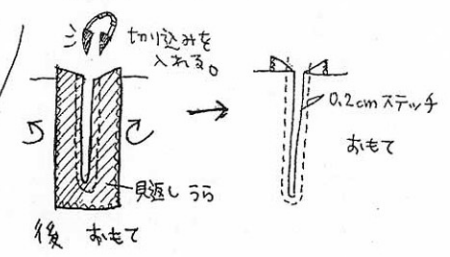 切り込みを
入れる。
見返し うら
後 おもて
0.2cm ステッチ
おもて